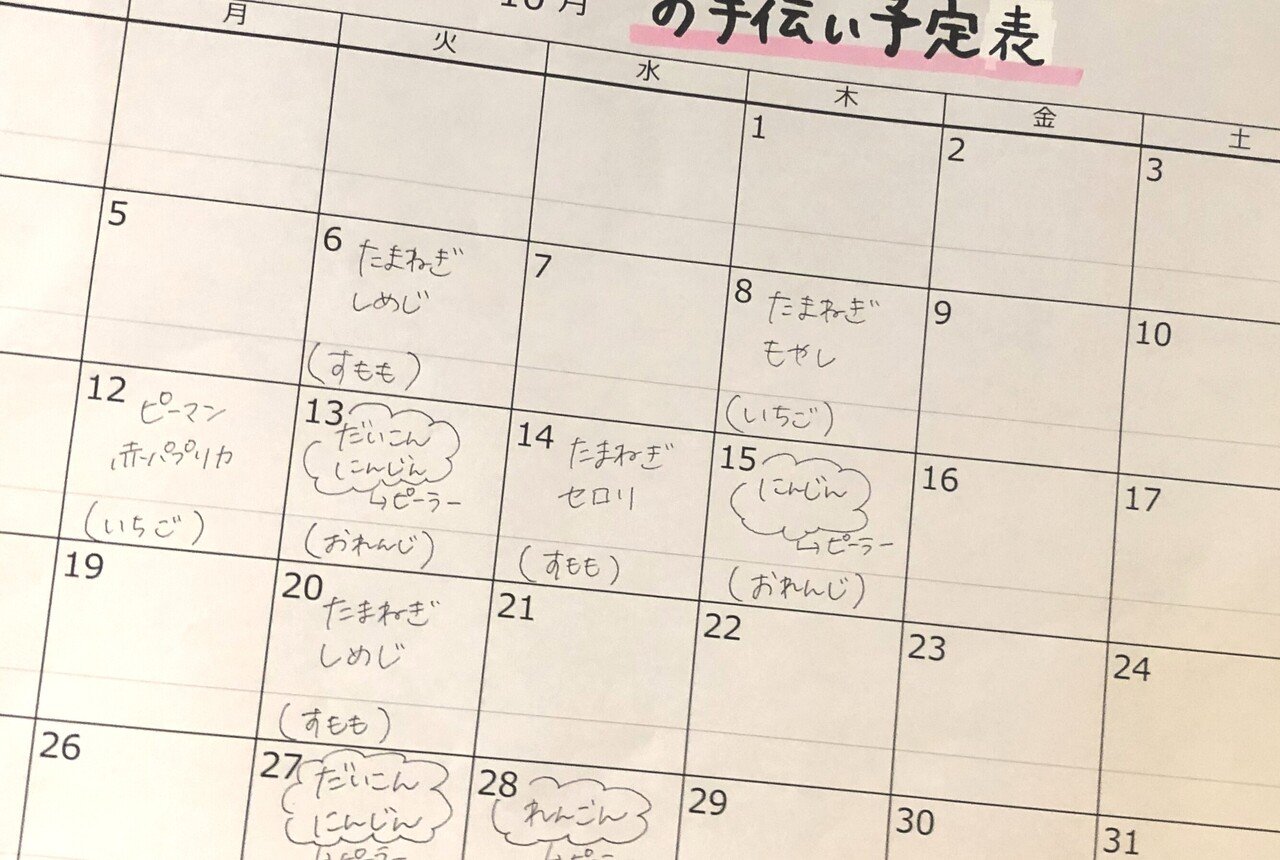 10月 の手伝い予定表
月 火 水 木 金 土
1 2 3
5
6 たまねぎ
しめじ
(すもも)
7
8 たまねぎ
もやし
(いちご)
9
10
12 ピーマン
赤パプリカ
(いちご)
13 だいこん
にんじん
↳ピーラー
(おれんじ)
14 たまねぎ
セロリ
(すもも)
15 にんじん
↳ピーラー
(おれんじ)
16
17
19
20 たまねぎ
しめじ
(すもも)
21
22
23
24
26
27 だいこん
にんじん
↳ピーラー
28 れんこん
↳ピー
29
30
31